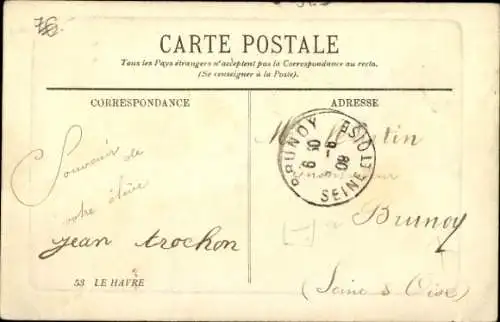 CARTE POSTALE
Tous les Pays étrangers n'acceptent pas la Correspondance au recto.
(Se renseigner à la Poste).
CORRESPONDANCE
ADRESSE
Souvenir de
votre élève
jean trochon
53 LE HAVRE
BRUNOY
SEINE ET OISE
09
M.
à
Brunoy
(Seine & Oise)